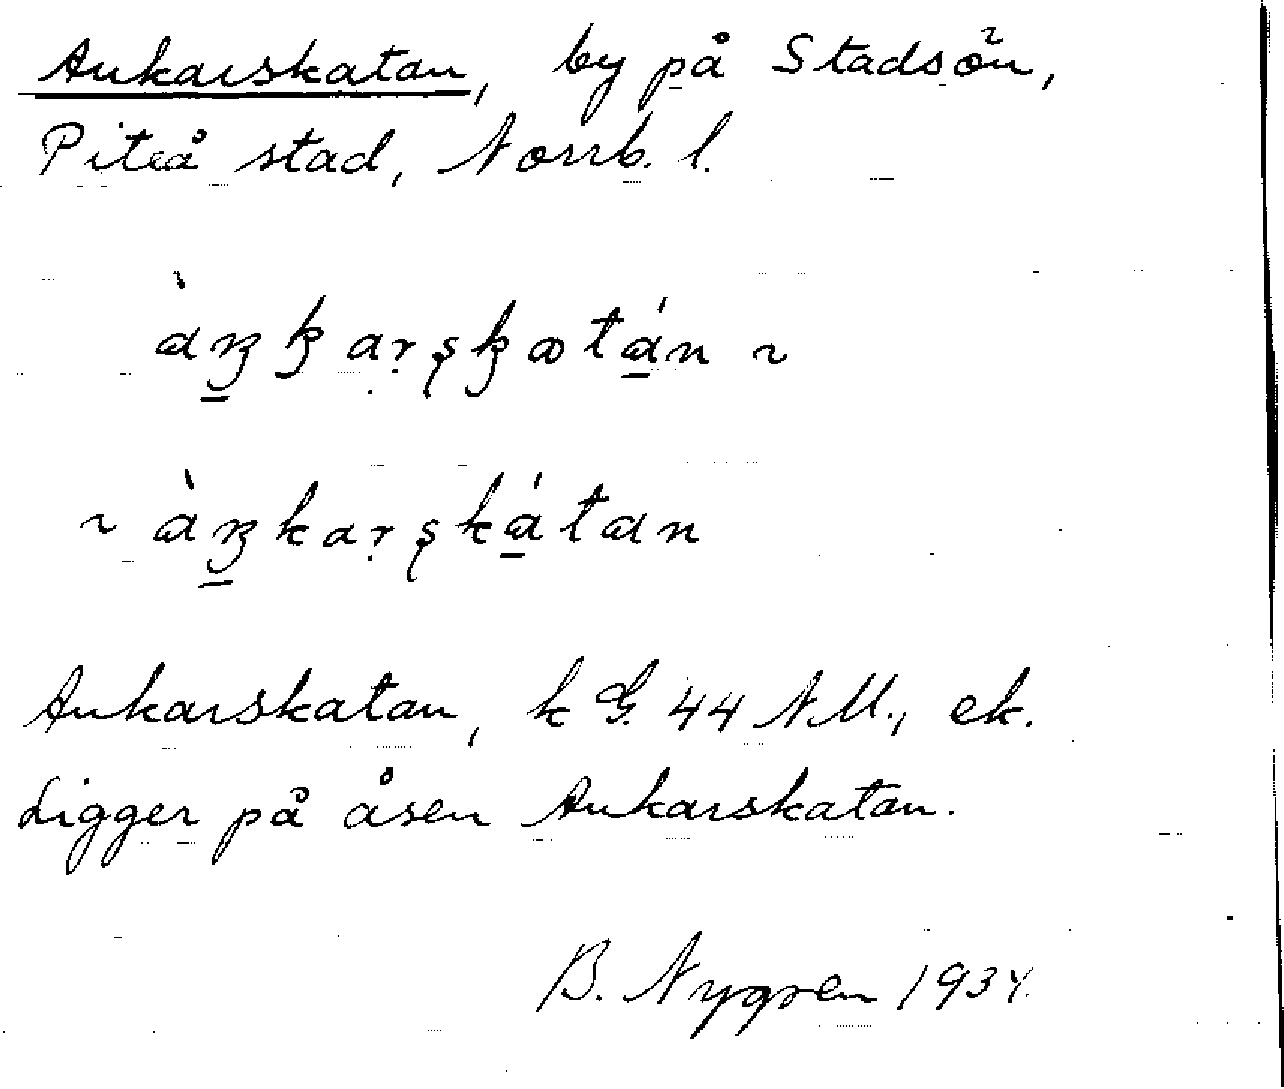 Ankarskatan, by på Stadsön,
Piteå stad, Norrb. l.
àŋkarskatán ~
~ àŋkarskátan
Ankarskatan, k G. 44 NM., ek.
Ligger på åsen Ankarskatan.
B. Nygren 1934.